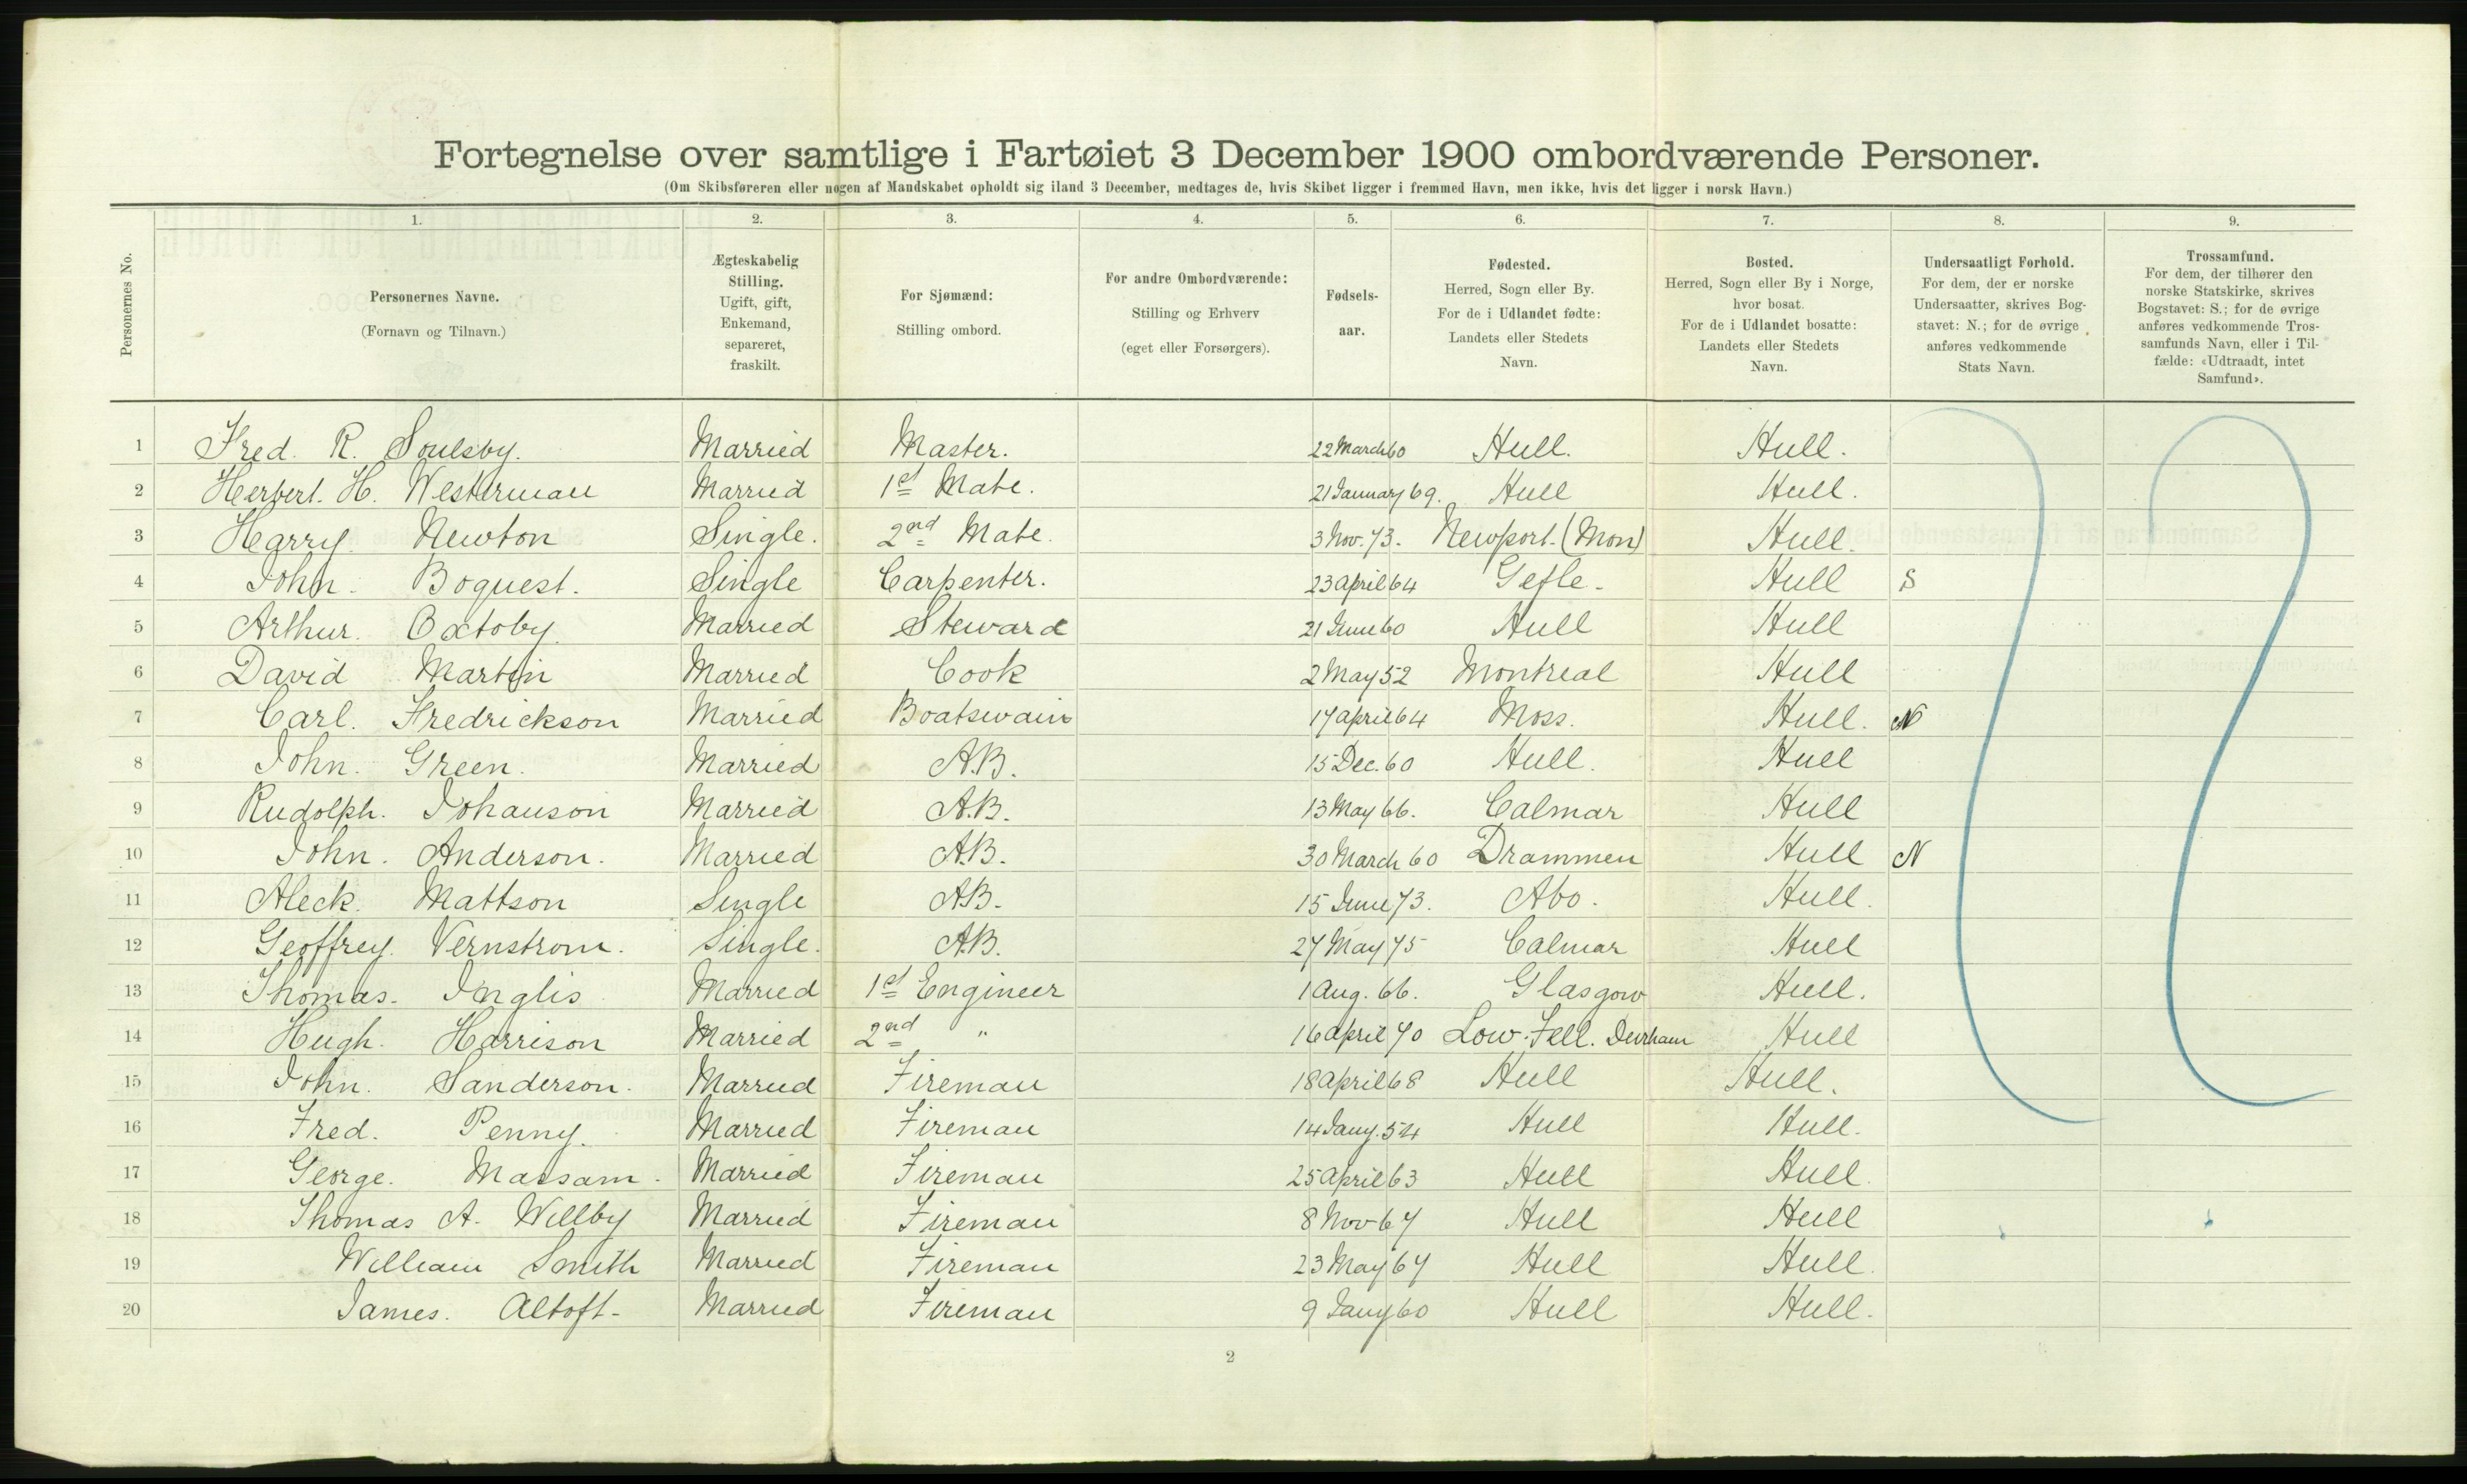 Fortegnelse over samtlige i Fartøiet 3 December 1900 ombordværende Personer.
(Om Skibsføreren eller nogen af Mandskabet opholdt sig iland 3 December, medtages de, hvis Skibet ligger i fremmed Havn, men ikke, hvis det ligger i norsk Havn.)
Personernes No.
1. 2. 3. 4. 5. 6. 7. 8. 9.
Personernes Navne.
(Fornavn og Tilnavn.)
Ægteskabelig
Stilling.
Ugift, gift,
Enkemand,
separeret,
fraskilt.
For Sjømænd:
Stilling ombord.
For andre Ombordværende:
Stilling og Erhverv
(eget eller Forsørgers).
Fødsels-
aar.
Fødested.
Herred, Sogn eller By.
For de i Udlandet fødte:
Landets eller Stedets
Navn.
Bosted.
Herred, Sogn eller By i Norge,
hvor bosat.
For de i Udlandet bosatte:
Landets eller Stedets
Navn.
Undersaatligt Forhold.
For dem, der er norske
Undersaatter, skrives Bog-
stavet: N.; for de øvrige
anføres vedkommende
Stats Navn.
Trossamfund.
For dem, der tilhører den
norske Statskirke, skrives
Bogstavet: S.; for de øvrige
anføres vedkommende Tros-
samfunds Navn, eller i Til-
fælde: «Udtraadt, intet
Samfund».
1 Fred. R. Soulsby. Married Master. 22 March 60 Hull. Hull.
2 Herbert. H. Westerman Married 1st Mate. 21 January 69. Hull Hull.
3 Harry. Newton Single. 2nd Mate. 3 Nov. 73. Newport. (Mon) Hull.
4 John. Boquest. Single Carpenter. 23 April 64 Gefle. Hull S
5 Arthur. Oxtoby. Married Steward 21 June 60 Hull Hull
6 David Martin Married Cook 2 May 52 Montreal Hull
7 Carl. Fredrickson Married Boatswain 17 April 64 Moss. Hull. N
8 John. Green. Married A.B. 15 Dec. 60 Hull. Hull
9 Rudolph. Johanson Married A.B. 13 May 66. Calmar Hull
10 John. Anderson. Married A.B. 30 March 60 Drammen Hull N
11 Aleck. Mattson Single A.B. 15 June 73. Abo. Hull.
12 Geoffrey. Vernstrom. Single. A.B. 27 May 75 Calmar Hull
13 Thomas. Inglis Married 1st Engineer 1 Aug. 66. Glasgow Hull.
14 Hugh. Harrison Married 2nd " 16 April 70 Low. Fell. Durham Hull
15 John. Sanderson. Married Fireman 18 April 68 Hull Hull.
16 Fred. Penny. Married Fireman 14 Jany. 54 Hull Hull.
17 George. Massam. Married Fireman 25 April 63 Hull Hull.
18 Thomas A. Willby Married Fireman 8 Nov 67 Hull Hull
19 William Smith Married Fireman 23 May 67 Hull Hull.
20 James. Altoft. Married Fireman 9 Jany 60 Hull Hull.
2